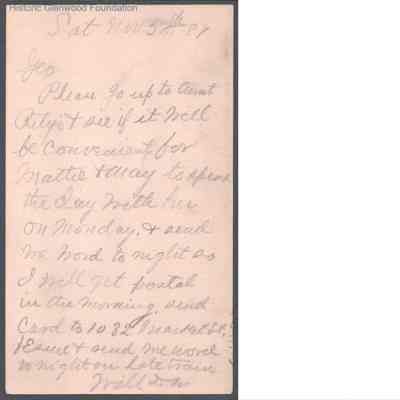 Historic Glenwood Foundation
Sat Nov 5th 87
Geo
Please go up to Aunt
& see if it Will
be Convenient for
Mattie & May to spend
the day With her
on Monday, & send
me Word to night so
I Will get postal
in the morning. send
Card to 1032 Market St.
& send me word
to night on late train
Will